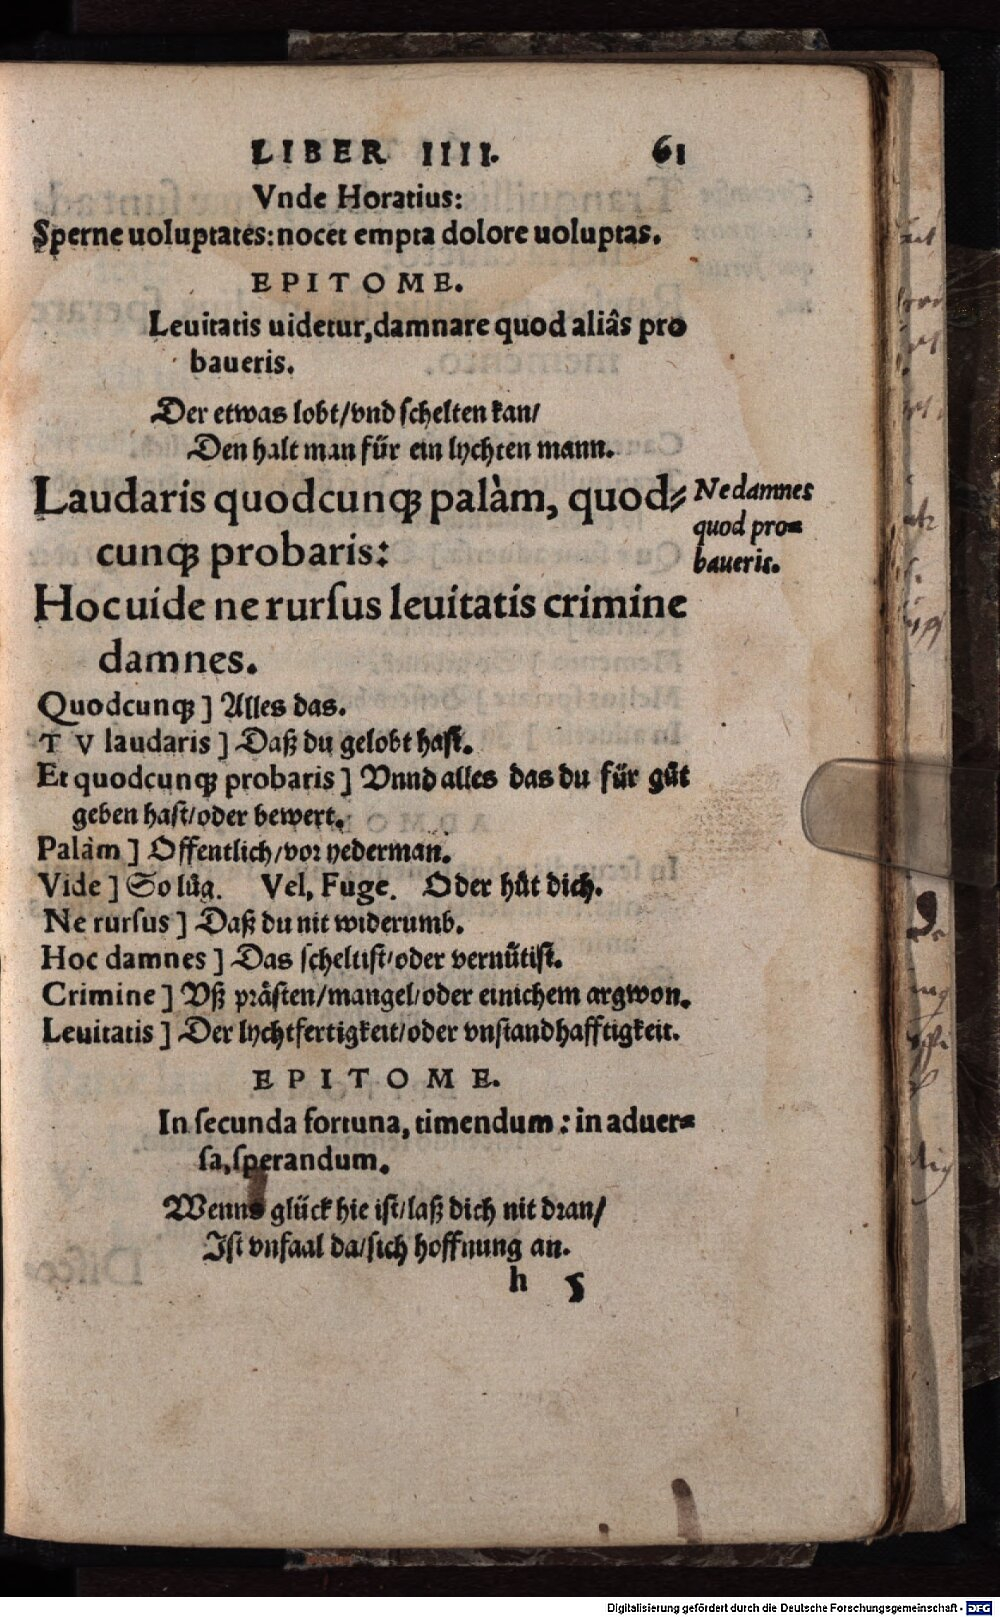 LIBER IIII. 61
Vnde Horatius:
Sperne uoluptates: nocet empta dolore uoluptas.
EPITOME.
Leuitatis uidetur, damnare quod aliâs pro
baueris.
Der etwas lobt/vnd schelten kan/
Den halt man für ein lychten mann.
Laudaris quodcunqꝫ palàm, quod⸗
cunqꝫ probaris:
Hoc uide ne rursus leuitatis crimine
damnes.
Ne damnes
quod pro=
baueris.
Quodcunqꝫ ] Alles das.
TV laudaris ] Daß du gelobt hast.
Et quodcunqꝫ probaris ] Vnnd alles das du für gůt
geben hast/oder bewert.
Palàm ] Offentlich/vor yederman.
Vide ] So lůg. Vel, Fuge. Oder hůt dich.
Ne rursus ] Daß du nit widerumb.
Hoc damnes ] Das scheltist/oder vernütist.
Crimine ] Vß prästen/mangel/oder einichem argwon.
Leuitatis ] Der lychtfertigkeit/oder vnstandhafftigkeit.
EPITOME.
In secunda fortuna, timendum: in aduer=
sa, sperandum.
Wenns glück hie ist/laß dich nit dran/
Ist vnfaal da/sich hoffnung an.
h 5
Digitalisierung gefördert durch die Deutsche Forschungsgemeinschaft - DFG